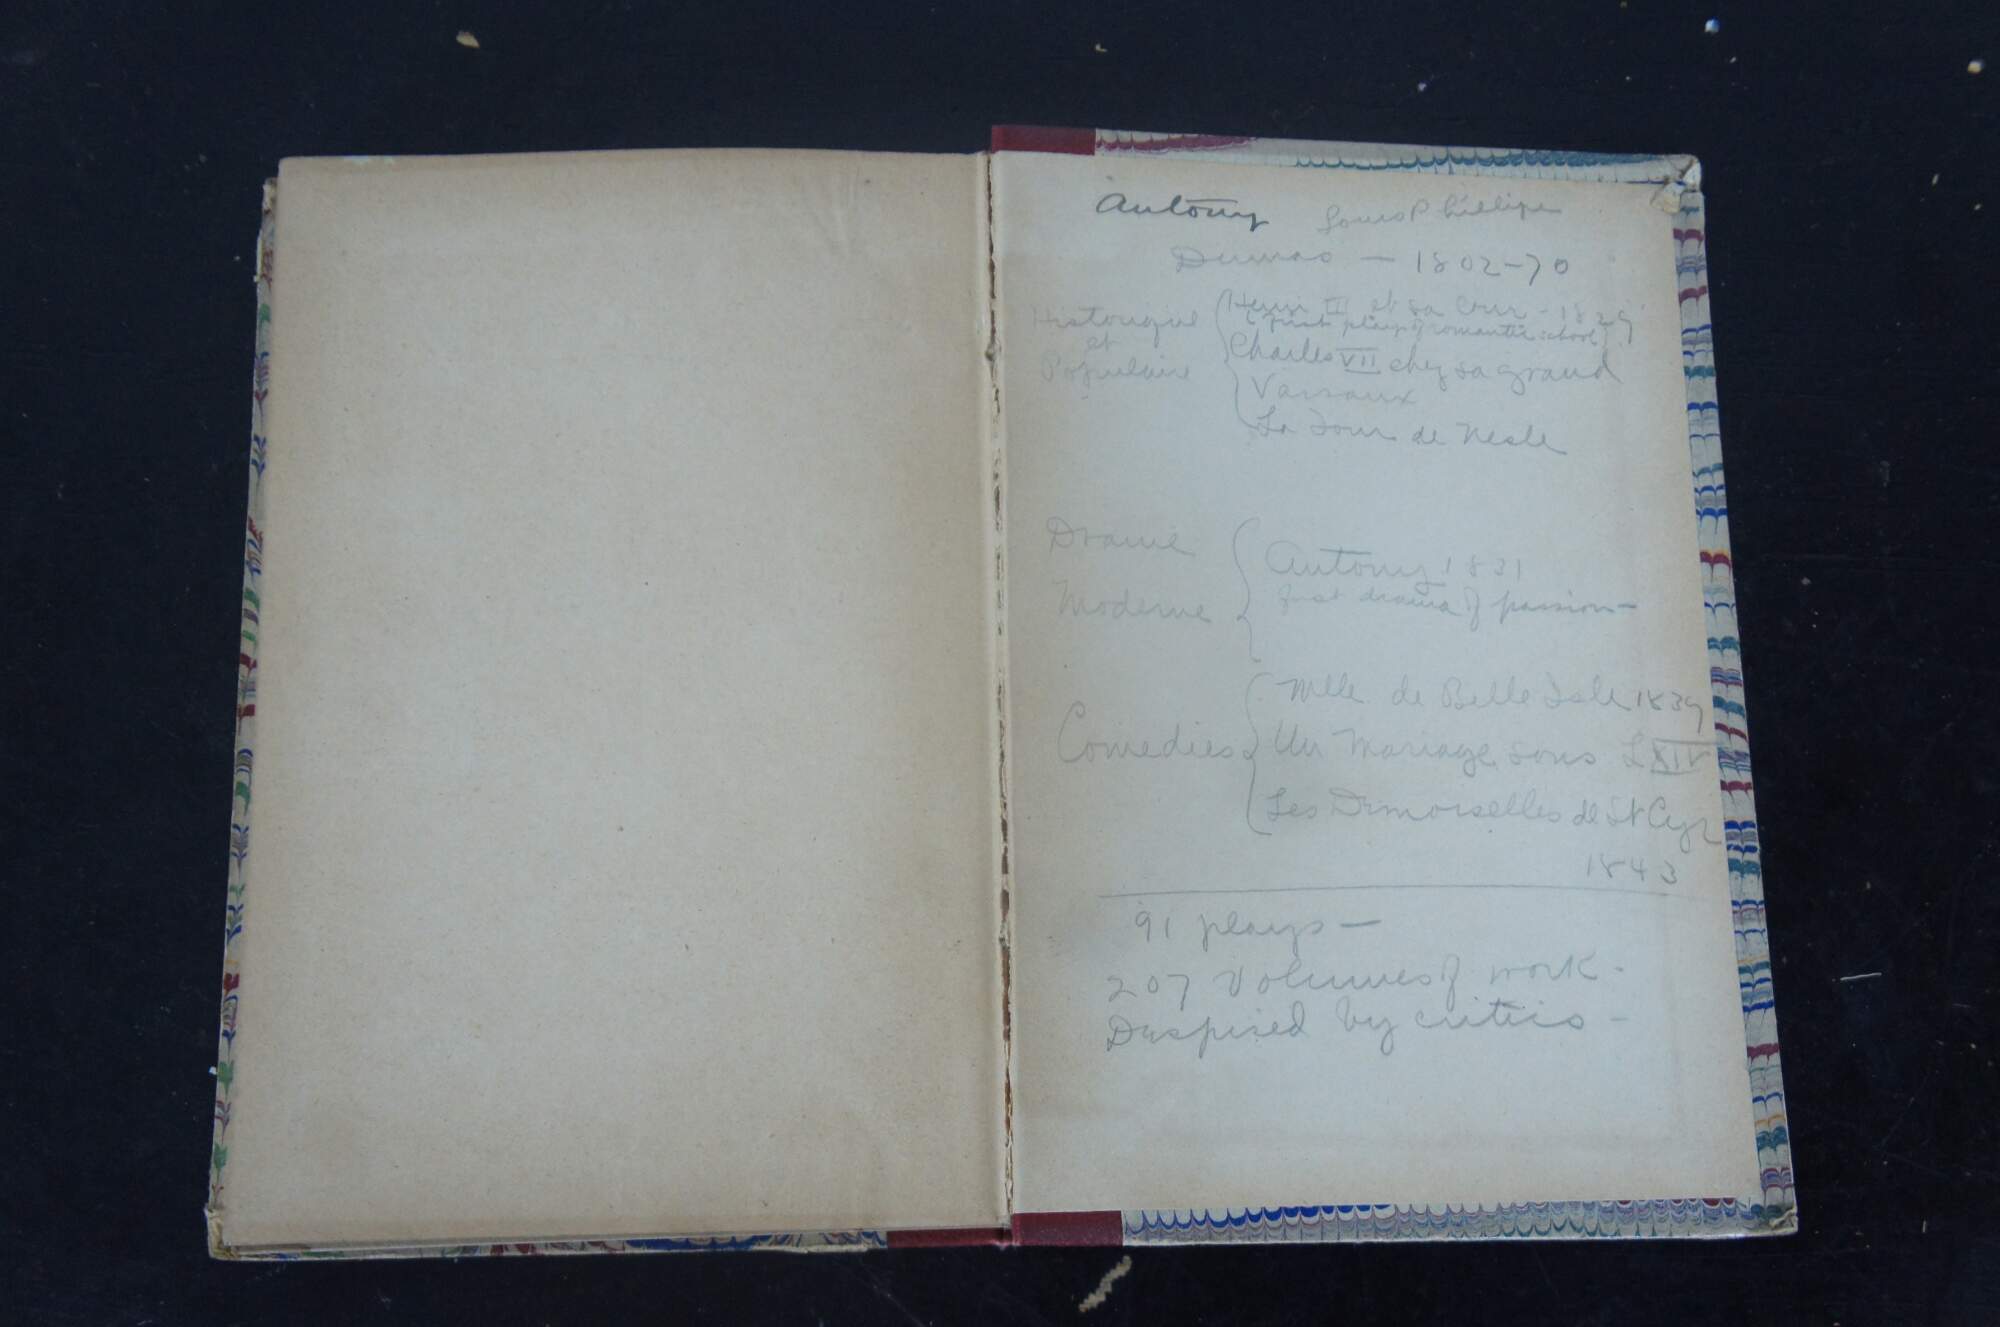 Antony Louis Phillipe
Dumas — 1802-70
Historique
et
Populaire
Henri III et sa Cour - 1829
(first play of romantic school)
Charles VII chez sa grand
Vassaux
La Tour de Nesle
Drame
Moderne
Antony 1831
first drama of passion—
Comedies
Mlle de Belle Isle 1839
Un Mariage sous L XIV
Les Demoiselles de St Cyr
1843
91 plays —
207 Volumes of work -
Despised by critics -